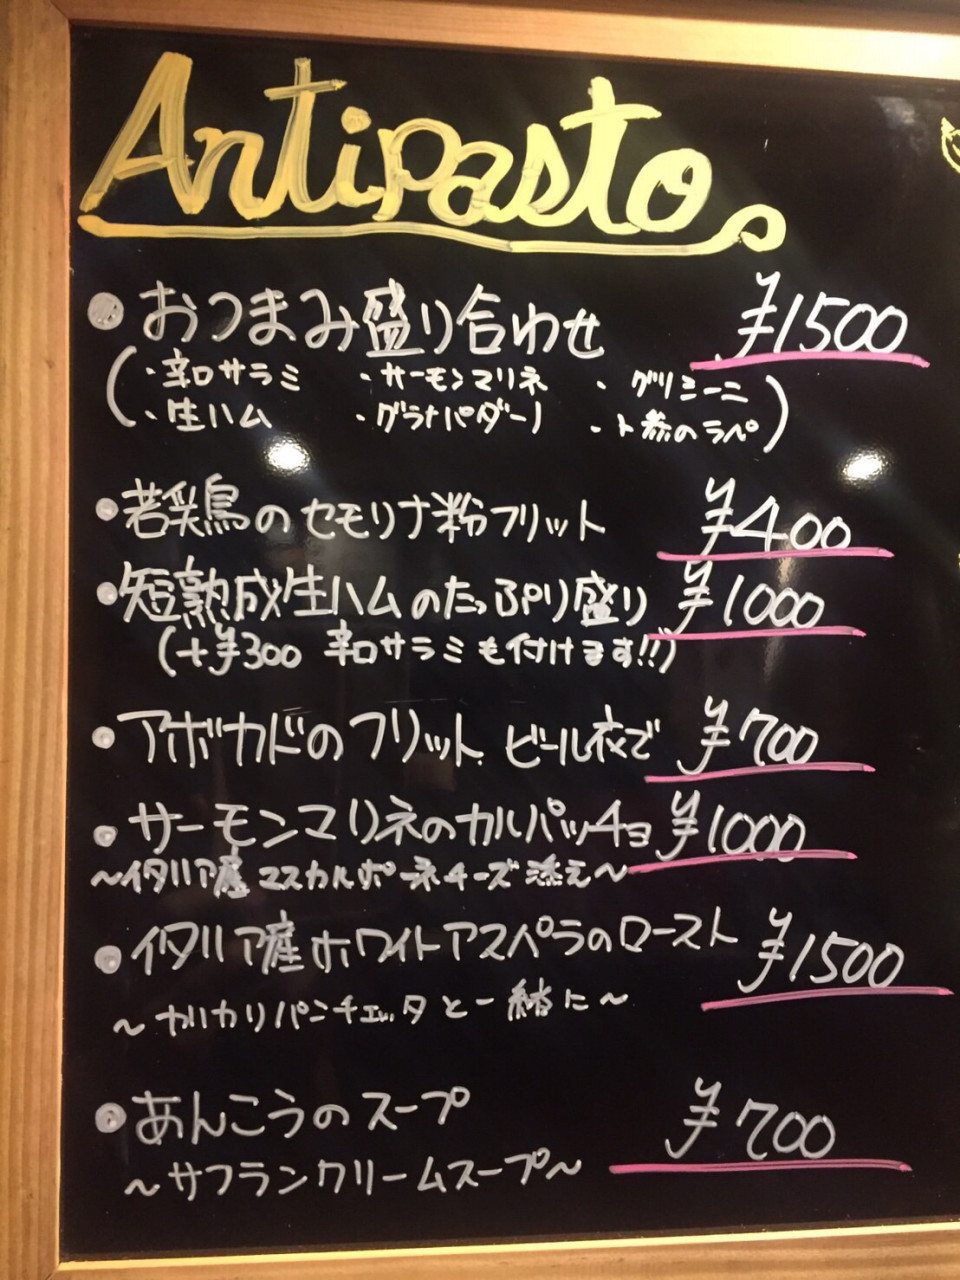 Antipasto
・おつまみ盛り合わせ ¥1500
(・辛口サラミ ・サーモンマリネ ・グリシーニ
・生ハム ・グラナパダーノ ・人参のラペ)
・若鶏のセモリナ粉フリット ¥400
・短熟成生ハムのたっぷり盛り ¥1000
(+¥300 辛口サラミも付けます!!)
・アボカドのフリット ビール衣で ¥700
・サーモンマリネのカルパッチョ ¥1000
~イタリア産マスカルポーネチーズ添え~
・イタリア産ホワイトアスペラのロースト ¥1500
~カリカリパンチェッタと一緒に~
・あんこうのスープ ¥700
~サフランクリームスープ~